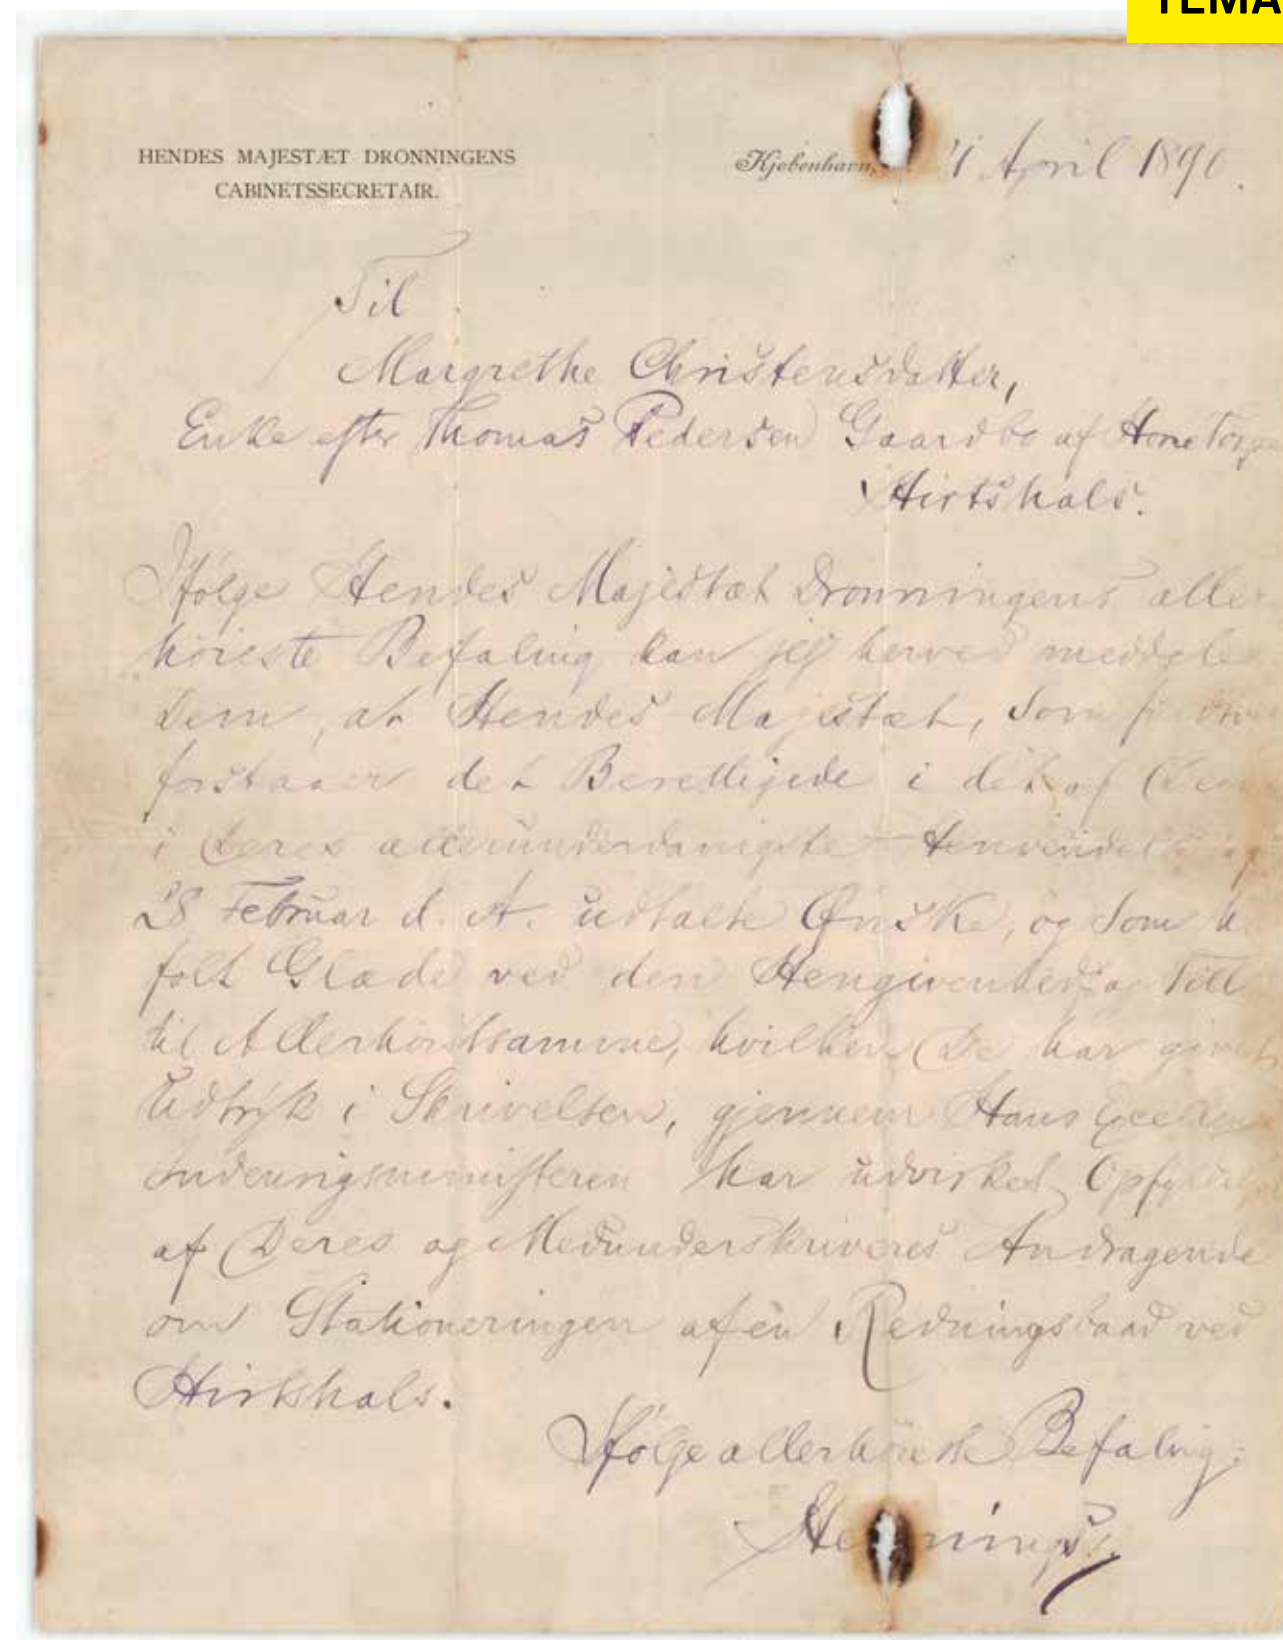 TEMA
HENDES MAJESTÆT DRONNINGENS
CABINETSSECRETAIR.
Kjøbenhavn, April 1890.
Til
Margrethe Christensdatter,
Enke efter Thomas Pedersen Gaardbo af Horne
Hirtshals.
Ifølge Hendes Majestæt Dronningens aller
höieste Befaling kan jeg herved meddele
Dem, at Hendes Majestæt, som
forstaaer det Berettigede i det af
i Deres allerunderdanigste Henvendelse af
28 Februar d. A. udtalte Ønske, og som
følt Glæde ved den Hengivenhed og
til Allerhöistsamme, hvilken De har givet
Udtryk i Skrivelsen, gjennem Hans
Indenrigsministeren har udvirket Opfyldelse
af Deres og Medunderskriveres Andragende
om Stationeringen af en Redningsbaad ved
Hirtshals.
Ifølge allerhöieste Befaling: